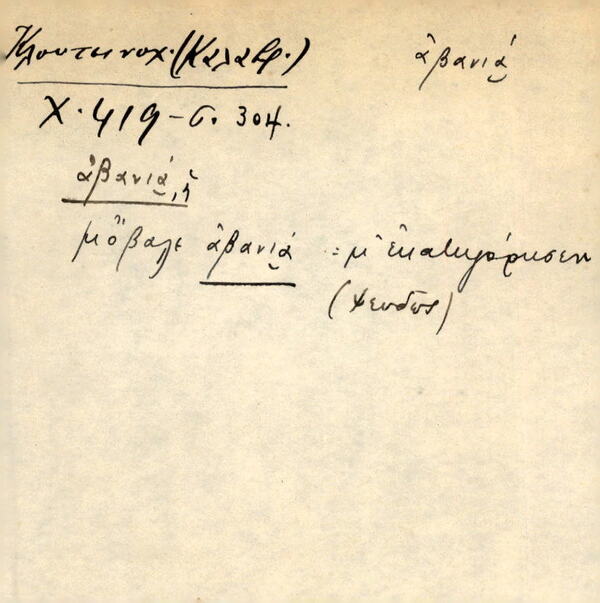 Κλουτσινοχ. (Καλαβρ.)
ἀβανιά
Χ. 419 – σ. 304.
ἀβανιά, ἡ
μὄβαλε ἀβανιά = μ' ἐκατηγόρησεν
(ψευδῶς)